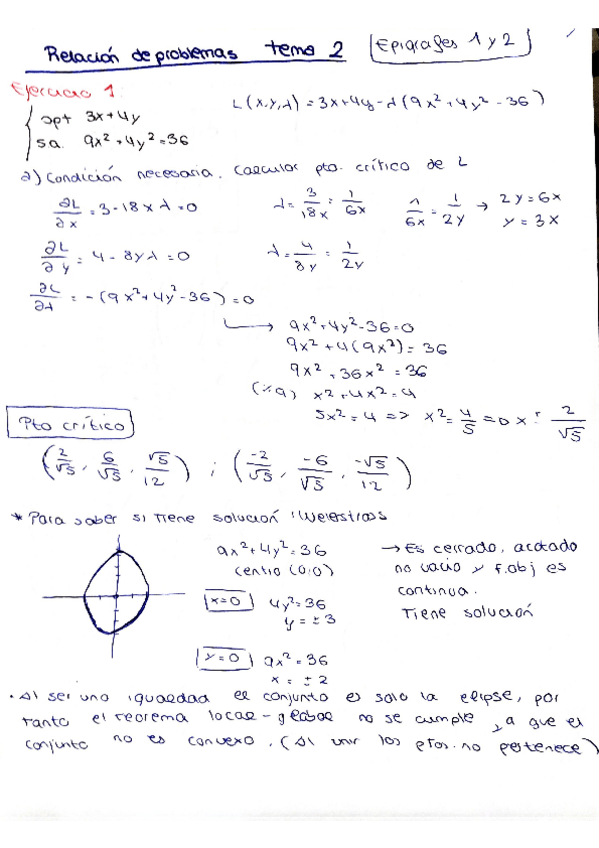 Relación de problemas tema 2 [Epígrafes 1 y 2]
Ejercicio 1.
opt 3x+4y
s.a. 9x²+4y²=36
L(x,y,λ)=3x+4y-λ(9x²+4y²-36)
a) Condición necesaria. Calcular pto. crítico de L
∂L/∂x = 3-18xλ=0
λ= 3/18x = 1/6x
1/6x = 1/2y → 2y=6x
y=3x
∂L/∂y = 4-8yλ=0
λ= 4/8y = 1/2y
∂L/∂λ = -(9x²+4y²-36)=0
→ 9x²+4y²-36=0
9x²+4(9x²)=36
9x²+36x²=36
(%9) x²+4x²=4
5x²=4 => x²=4/5 => x= 2/√5
Pto crítico
(2/√5, 6/√5, √5/12) ; (-2/√5, -6/√5, -√5/12)
* Para saber si tiene solución: Weierstrass
9x²+4y²=36
centro (0,0)
x=0 4y²=36
y=±3
y=0 9x²=36
x=±2
→ Es cerrado, acotado
no vacío y f.obj es
continua.
Tiene solución
· Al ser una igualdad el conjunto es solo la elipse, por
tanto el teorema local-global no se cumple ya que el
conjunto no es convexo. (Al unir los ptos. no pertenece)